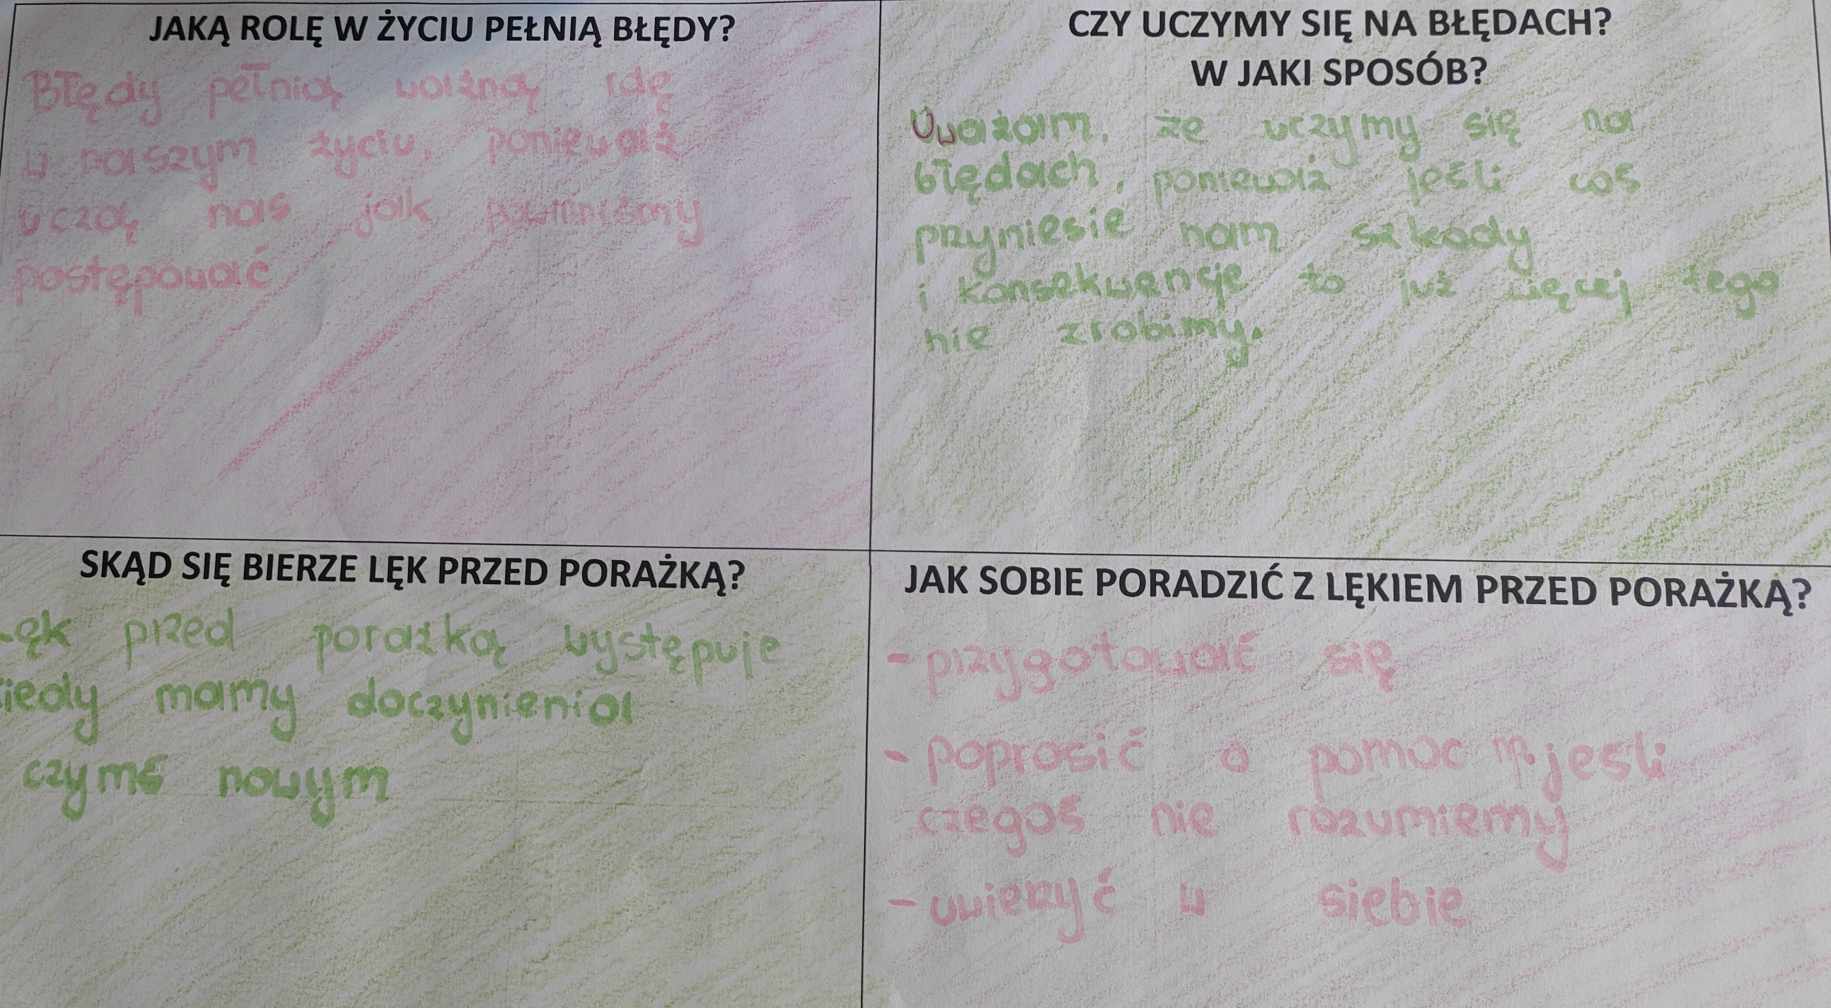 JAKĄ ROLĘ W ŻYCIU PEŁNIĄ BŁĘDY?
Błędy pełnią ważną rolę
w naszym życiu, ponieważ
uczą nas jak powinniśmy
postępować
CZY UCZYMY SIĘ NA BŁĘDACH?
W JAKI SPOSÓB?
Uważam, że uczymy się na
błędach, ponieważ jeśli coś
przyniesie nam szkody
i konsekwencje to już więcej tego
nie zrobimy.
SKĄD SIĘ BIERZE LĘK PRZED PORAŻKĄ?
Lęk przed porażką występuje
kiedy mamy doczynienia
czymś nowym
JAK SOBIE PORADZIĆ Z LĘKIEM PRZED PORAŻKĄ?
- przygotować się
- poprosić o pomoc np. jeśli
czegoś nie rozumiemy
- uwierzyć w siebie